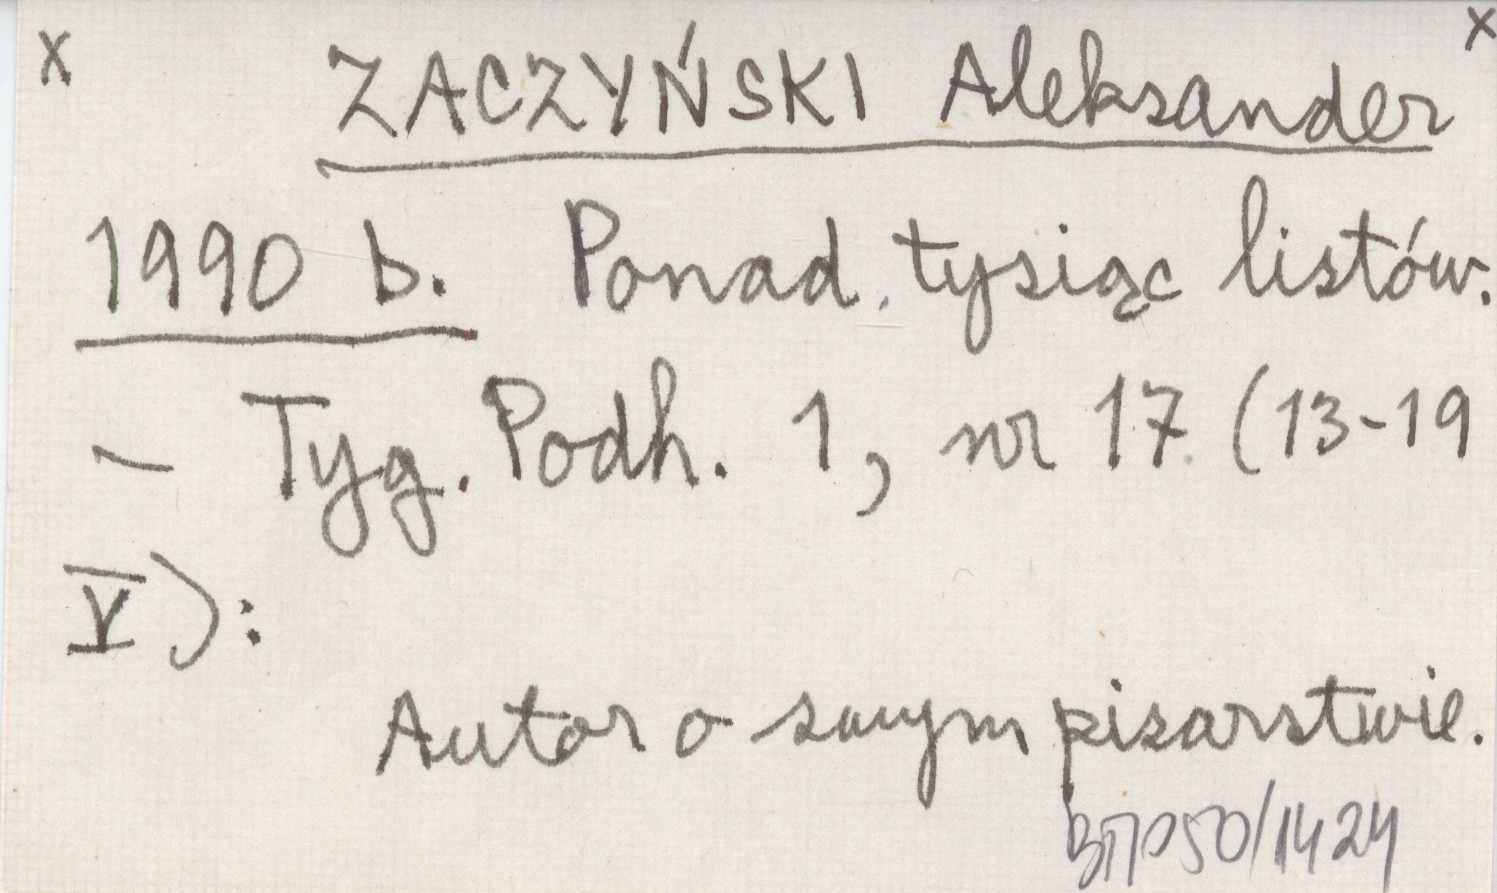 x ZACZYŃSKI Aleksander x
1990 b. Ponad tysiąc listów.
– Tyg. Podh. 1, nr 17 (13-19
V):
Autor o swym pisarstwie.
050/1424